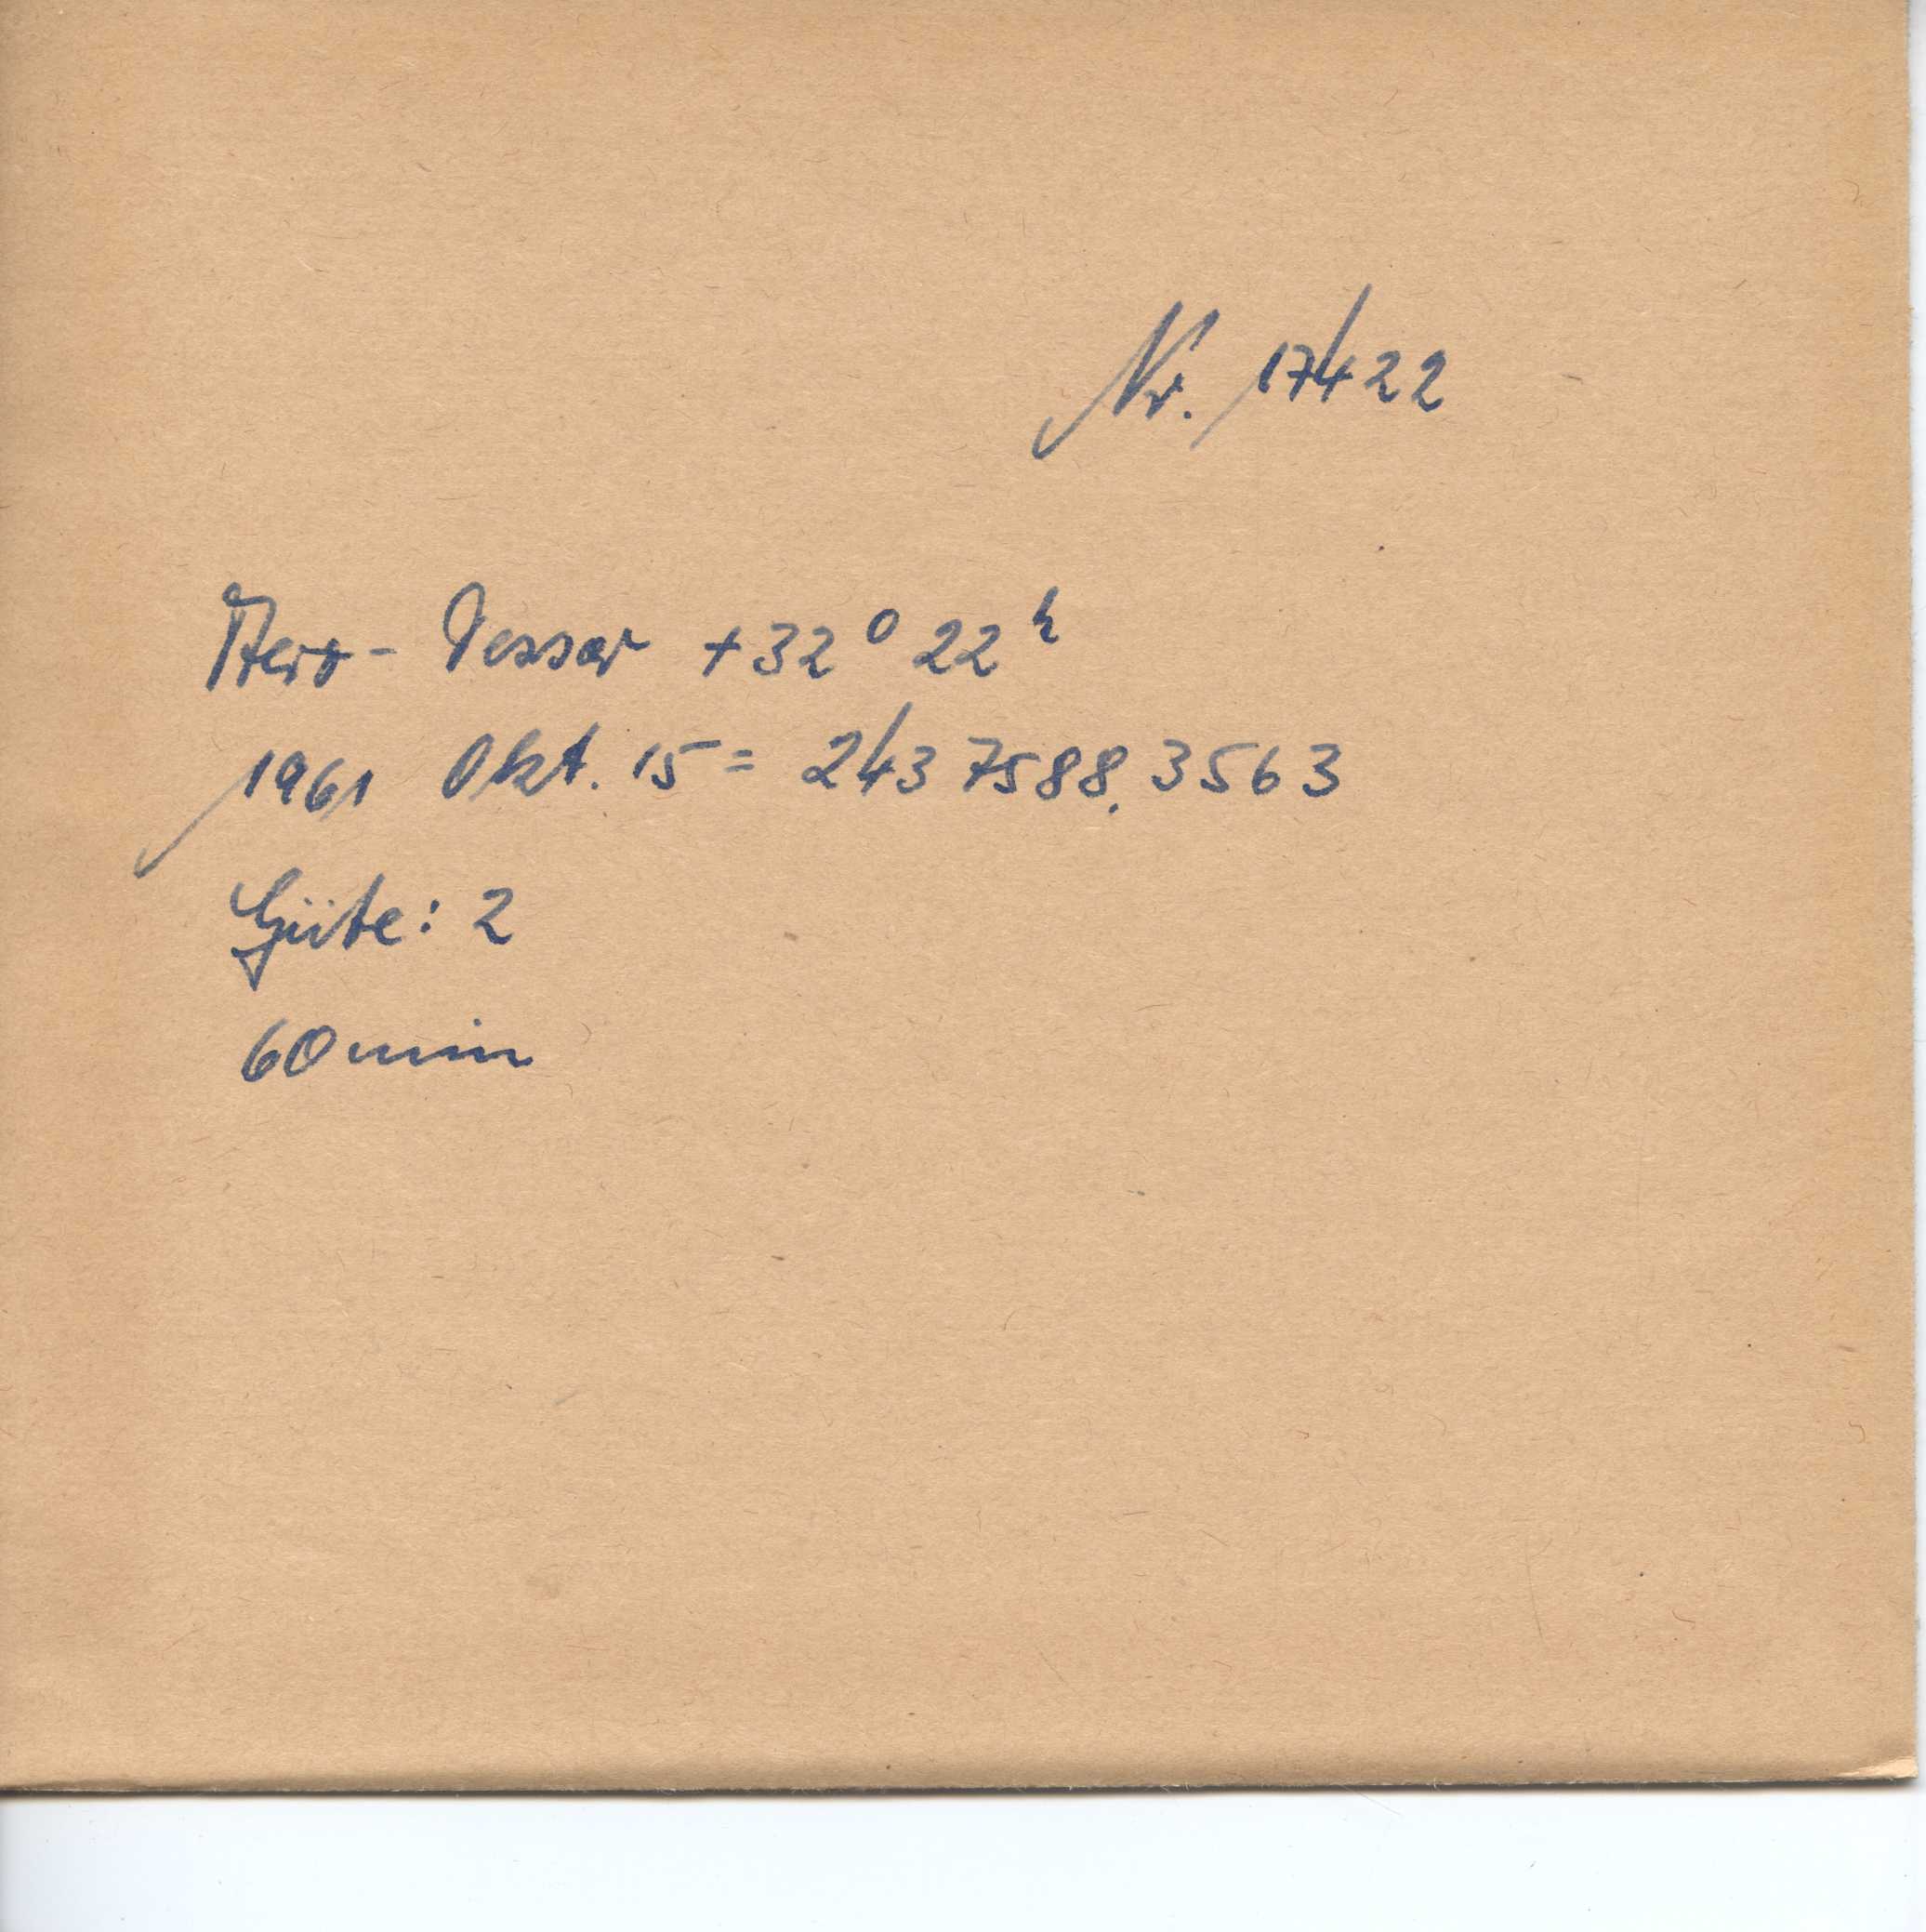 Nr. 17422
Aero-Tessar +32° 22ʰ
1961 Okt. 15 = 2437588.3563
Güte: 2
60 min